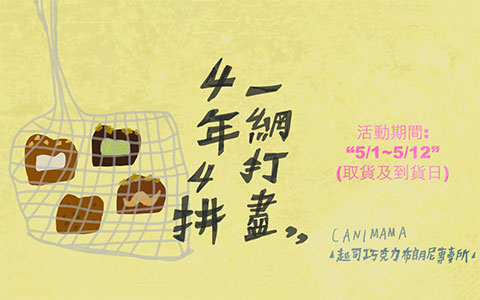 4年4拼
一網打盡,,
活動期間:
“5/1~5/12”
(取貨及到貨日)
CANIMAMA
起司巧克力布朗尼專賣所